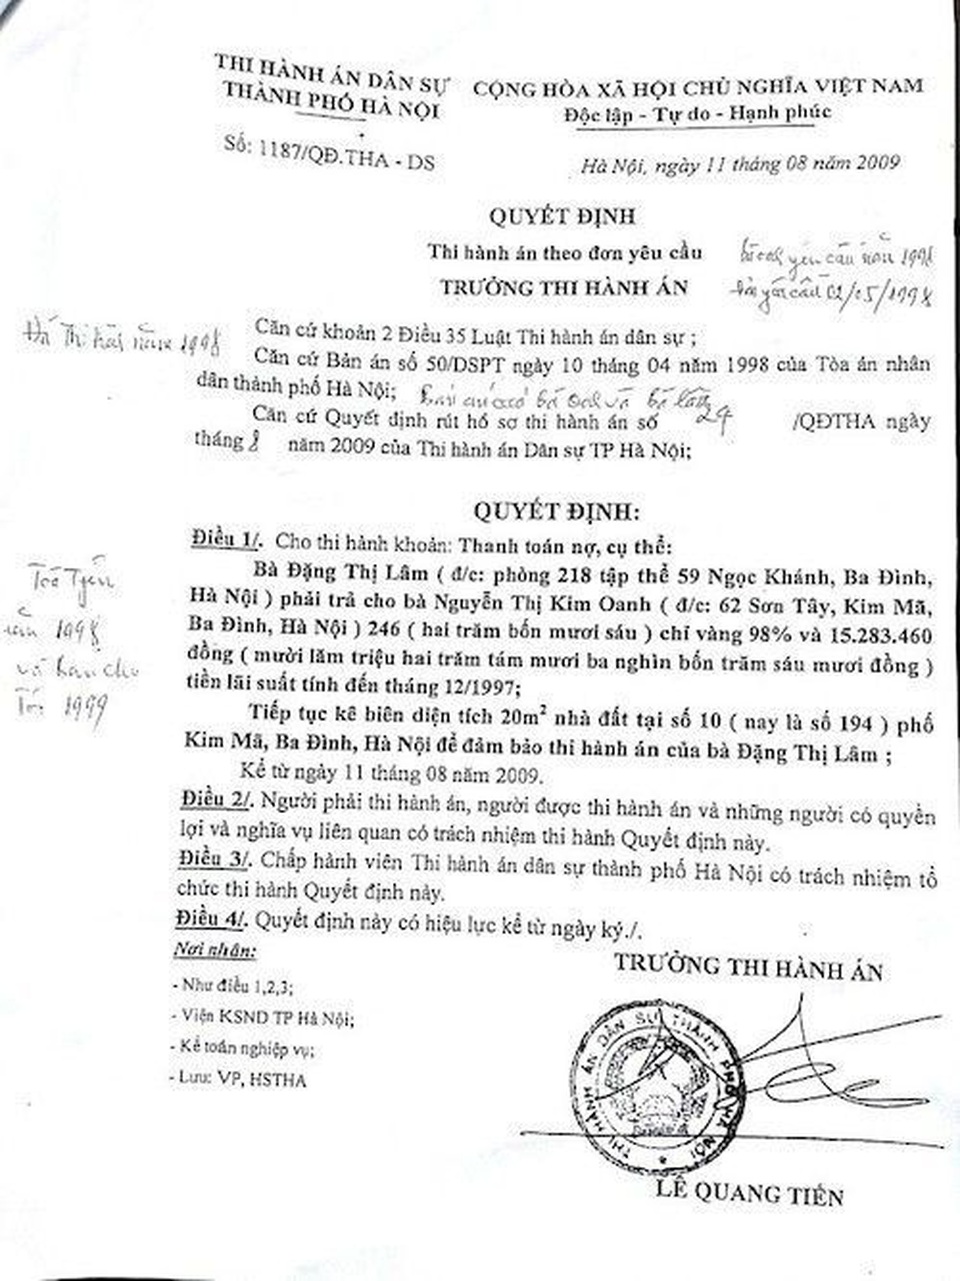 THI HÀNH ÁN DÂN SỰ
THÀNH PHỐ HÀ NỘI
Số: 1187/QĐ.THA - DS
CỘNG HÒA XÃ HỘI CHỦ NGHĨA VIỆT NAM
Độc lập - Tự do - Hạnh phúc
Hà Nội, ngày 11 tháng 08 năm 2009
QUYẾT ĐỊNH
Thi hành án theo đơn yêu cầu
yêu cầu năm 1998
TRƯỞNG THI HÀNH ÁN
yêu cầu 02/05/1998
Đã Thi hành năm 1998
Căn cứ khoản 2 Điều 35 Luật Thi hành án dân sự ;
Căn cứ Bản án số 50/DSPT ngày 10 tháng 04 năm 1998 của Tòa án nhân
dân thành phố Hà Nội;
Căn cứ Quyết định rút hồ sơ thi hành án số 24 /QĐTHA ngày
tháng 8 năm 2009 của Thi hành án Dân sự TP Hà Nội;
QUYẾT ĐỊNH:
Điều 1/. Cho thi hành khoản: Thanh toán nợ, cụ thể:
Bà Đặng Thị Lâm ( đ/c: phòng 218 tập thể 59 Ngọc Khánh, Ba Đình,
Hà Nội ) phải trả cho bà Nguyễn Thị Kim Oanh ( đ/c: 62 Sơn Tây, Kim Mã,
Ba Đình, Hà Nội ) 246 ( hai trăm bốn mươi sáu ) chỉ vàng 98% và 15.283.460
đồng ( mười lăm triệu hai trăm tám mươi ba nghìn bốn trăm sáu mươi đồng )
tiền lãi suất tính đến tháng 12/1997;
Tiếp tục kê biên diện tích 20m² nhà đất tại số 10 ( nay là số 194 ) phố
Kim Mã, Ba Đình, Hà Nội để đảm bảo thi hành án của bà Đặng Thị Lâm ;
Kể từ ngày 11 tháng 08 năm 2009.
1998
và
1999
Điều 2/. Người phải thi hành án, người được thi hành án và những người có quyền
lợi và nghĩa vụ liên quan có trách nhiệm thi hành Quyết định này.
Điều 3/. Chấp hành viên Thi hành án dân sự thành phố Hà Nội có trách nhiệm tổ
chức thi hành Quyết định này.
Điều 4/. Quyết định này có hiệu lực kể từ ngày ký./.
Nơi nhân:
- Như điều 1,2,3;
- Viện KSND TP Hà Nội;
- Kế toán nghiệp vụ;
- Lưu: VP, HSTHA
TRƯỞNG THI HÀNH ÁN
THI HÀNH ÁN DÂN SỰ THÀNH PHỐ HÀ NỘI
LÊ QUANG TIẾN